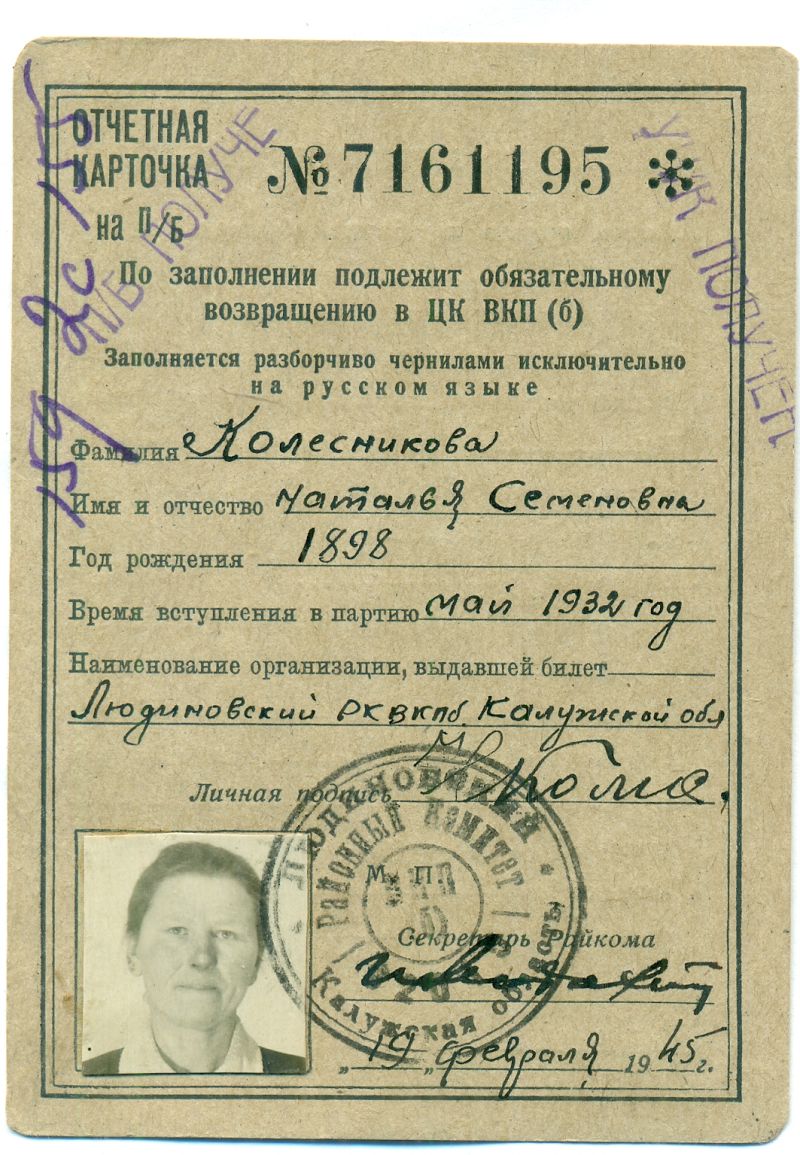 ОТЧЕТНАЯ
КАРТОЧКА
на П/Б
№ 7161195 *
По заполнении подлежит обязательному
возвращению в ЦК ВКП (б)
Заполняется разборчиво чернилами исключительно
на русском языке
Фамилия Колесникова
Имя и отчество Наталья Семеновна
Год рождения 1898
Время вступления в партию май 1932 год
Наименование организации, выдавшей билет
Людиновский РКВКПб Калужской обл
Личная подпись
М. П.
Секретарь Райкома
„19„ февраля 1945 г.
П/Б ПОЛУЧЕ
ПОЛУЧЕН
159 2с 155
Людиновский
Районный Комитет
Калужская область